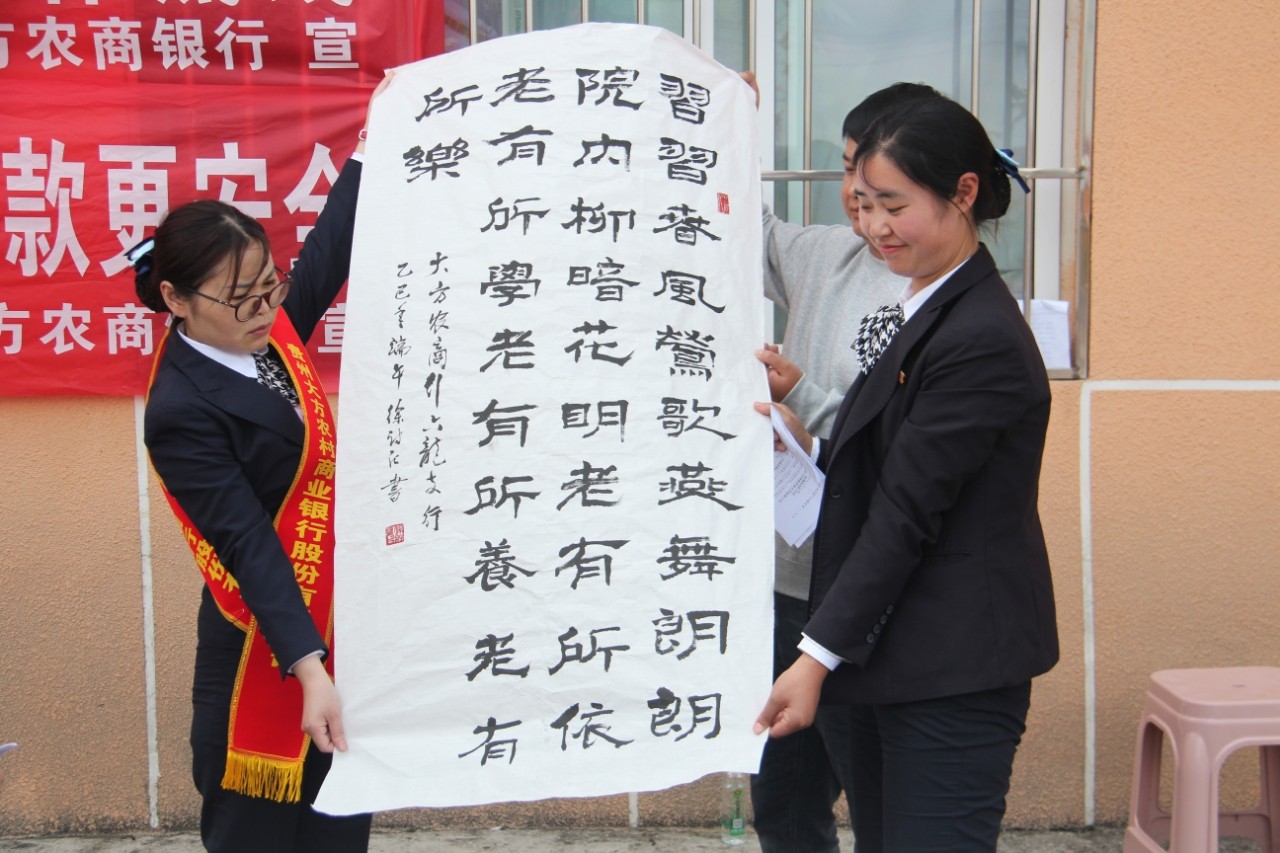 方农商银行 宣
款更安全
方农商银行 宣
習習春風鶯歌燕舞朗朗
院内柳暗花明老有所依
老有所學老有所養老有
所樂
大方农商行六龍支行
乙巳年端午 徐 書
贵州大方农村商业银行股份有